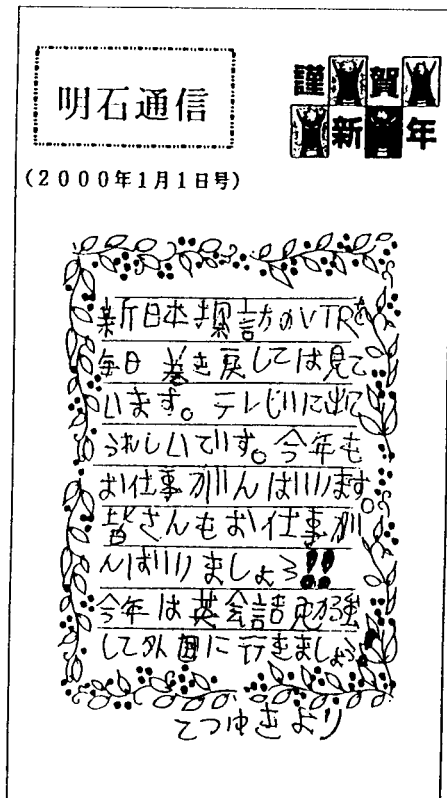 謹賀
新年
明石通信
(2000年1月1日号)
新日本探訪のVTRを
毎日 巻き戻しては見て
います。テレビに出て
うれしいです。今年も
お仕事がんばります。
皆さんもお仕事が
んばりましょう!!
今年は英会話勉強
して外国に行きましょう
てつゆきより